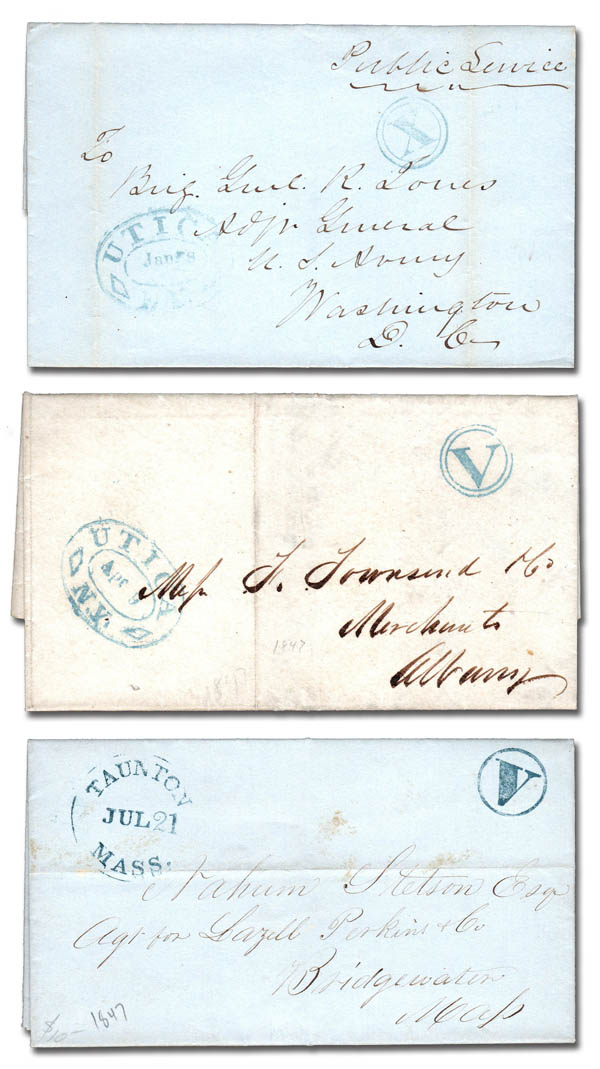 Public Service
V
To
Brig. Genl. R. Jones
Adjt General
U. S. Army
Washington
D. C.
UTICA
Jan 28
N.Y.
V
UTICA
APR 9
N.Y.
Mess. I. Townsend & Co
Merchants
Albany
1847
1847
TAUNTON
JUL 21
MASS.
V
Nahum Stetson Esqr
Agt for Lazell Perkins & Co
Bridgewater
Mass
$10- 1847